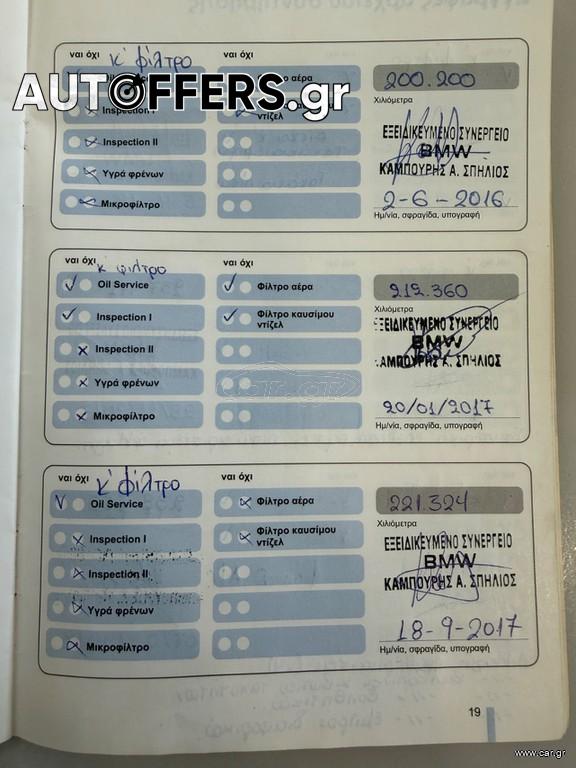 ναι όχι κ' φίλτρο ναι όχι
Φίλτρο αέρα
200.200
AUTOFFERS.gr
Χιλιόμετρα
Inspection I
Inspection II
Υγρά φρένων
Μικροφίλτρο
ΕΞΕΙΔΙΚΕΥΜΕΝΟ ΣΥΝΕΡΓΕΙΟ
BMW
ΚΑΜΠΟΥΡΗΣ Α. ΣΠΗΛΙΟΣ
2-6-2016
Ημ/νία, σφραγίδα, υπογραφή
ναι όχι κ' φίλτρο ναι όχι
Oil Service Φίλτρο αέρα
212.360
Χιλιόμετρα
Inspection I Φίλτρο καυσίμου
ντίζελ
Inspection II
Υγρά φρένων
Μικροφίλτρο
ΕΞΕΙΔΙΚΕΥΜΕΝΟ ΣΥΝΕΡΓΕΙΟ
BMW
ΚΑΜΠΟΥΡΗΣ Α. ΣΠΗΛΙΟΣ
20/01/2017
Ημ/νία, σφραγίδα, υπογραφή
car.gr
ναι όχι κ' φίλτρο ναι όχι
Oil Service Φίλτρο αέρα
221.324
Χιλιόμετρα
Inspection I Φίλτρο καυσίμου
ντίζελ
Inspection II
Υγρά φρένων
Μικροφίλτρο
ΕΞΕΙΔΙΚΕΥΜΕΝΟ ΣΥΝΕΡΓΕΙΟ
BMW
ΚΑΜΠΟΥΡΗΣ Α. ΣΠΗΛΙΟΣ
18-9-2017
Ημ/νία, σφραγίδα, υπογραφή
19
www.car.gr